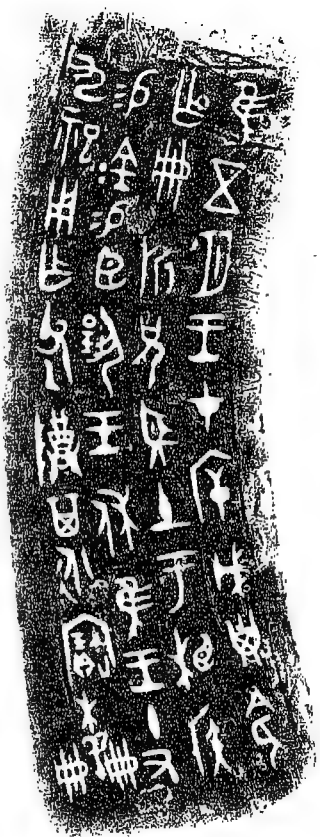 隹五月王才斥戊子令
乍冊折兄望土于相侯
易金易臣揚王休隹王十又
九祀用乍父乙尊其永寶木羊冊